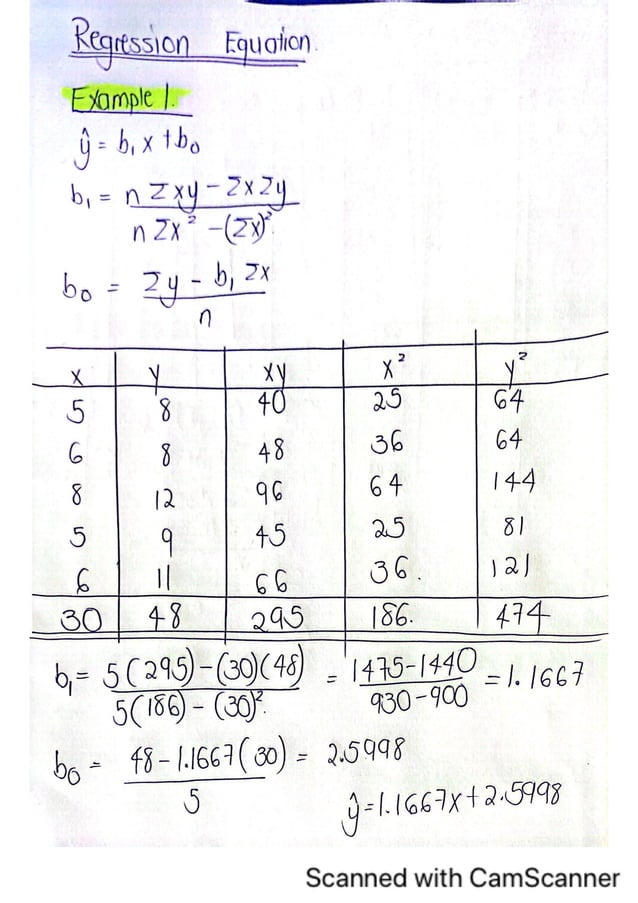 Regression Equation.
Example 1.
ŷ = b₁x + b₀
b₁ = nΣxy - ΣxΣy
nΣx² - (Σx)²
b₀ = Σy - b₁Σx
n
x y xy x² y²
5 8 40 25 64
6 8 48 36 64
8 12 96 64 144
5 9 45 25 81
6 11 66 36. 121
30 48 295 186. 474
b₁ = 5(295)-(30)(48) = 1475-1440 = 1.1667
5(186)-(30)². 930-900
b₀ = 48-1.1667(30) = 2.5998
5
ŷ=1.1667x+2.5998
Scanned with CamScanner